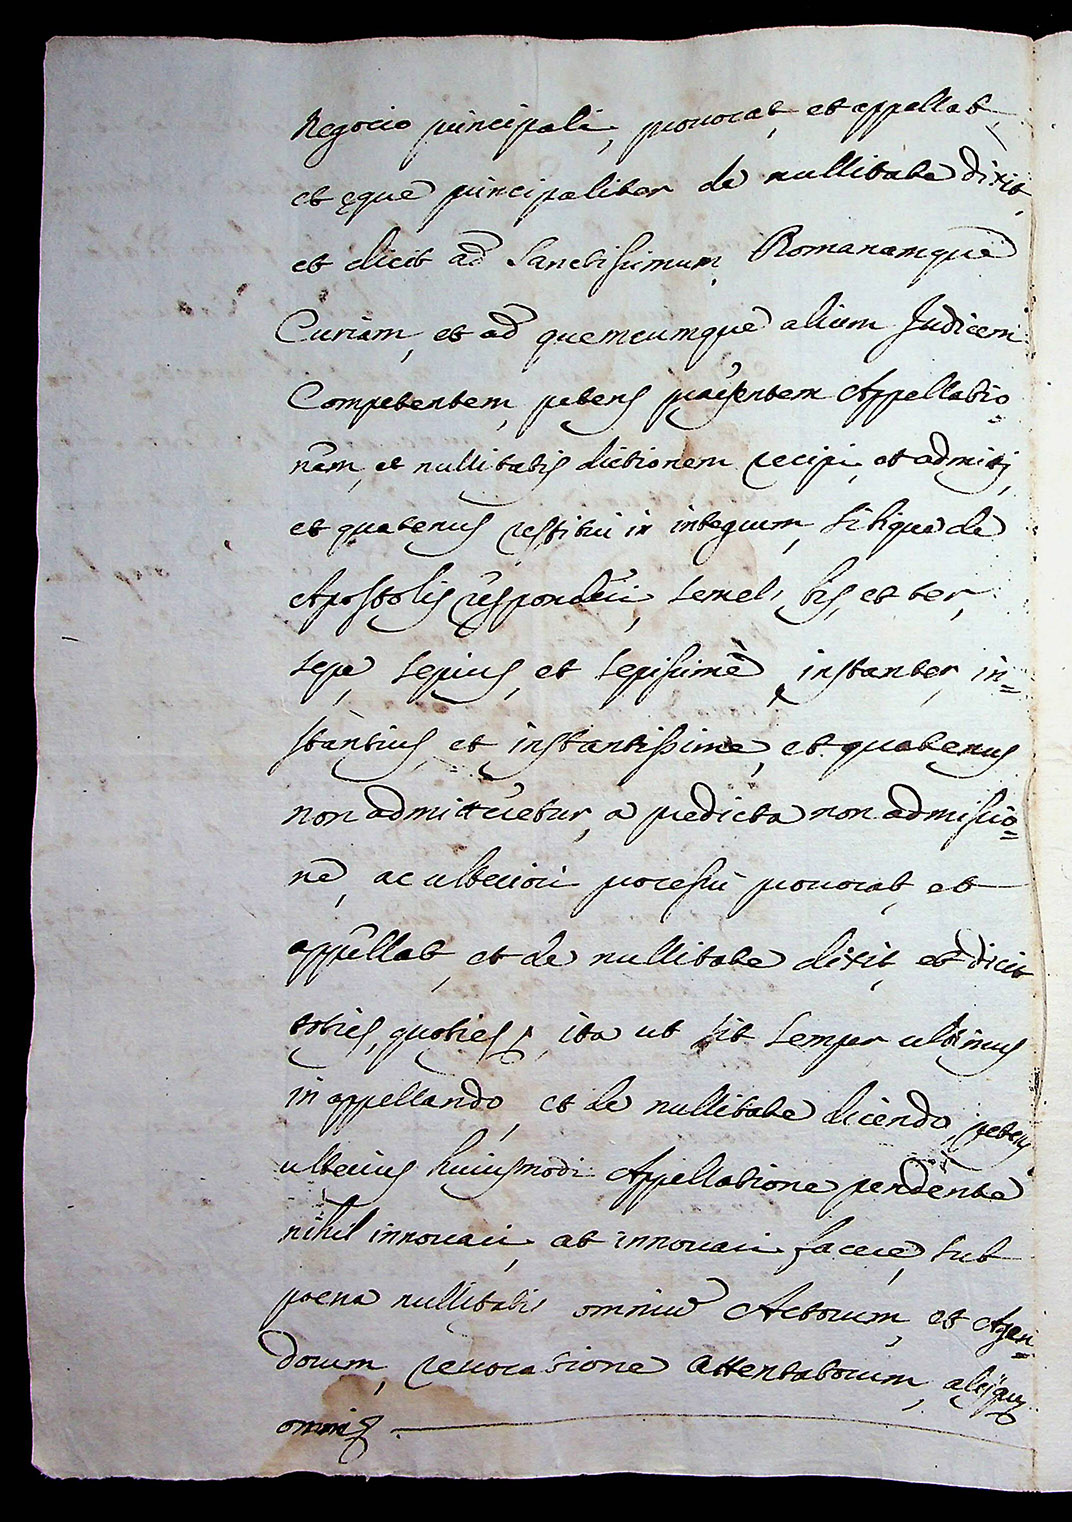 Negocio principali, provocat, et appellat,
et ęque principaliter de nullitate dixit,
et dicit ad Sanctissimum, Romanamque
Curiam, et ad quemcumque alium Judicem
Competentem, petens praesentem Appellatio=
nem, et nullitatis dictionem recipi, et admitti,
et quatenus restitui in integrum, sibique de
Apostolis responderi, semel, bis, et ter,
sepe, sepius, et sepissimè, instanter, in=
stantius, et instantissime, et quatenus
non admitteretur, a predicta non admissio=
ne, ac ulteriori processu provocat, et
appellat, et de nullitate dixit, et dicit
toties, quoties, ita ut sit semper ultimus
in appellando, et de nullitate dicendo, petens
ulterius huiusmodi Appellatione pendente
nihil innovari, at innovari facere, sub
poena nullitatis omniu Actorum, et Agen=
dorum, revocatione attentatorum, alijsq
omnis